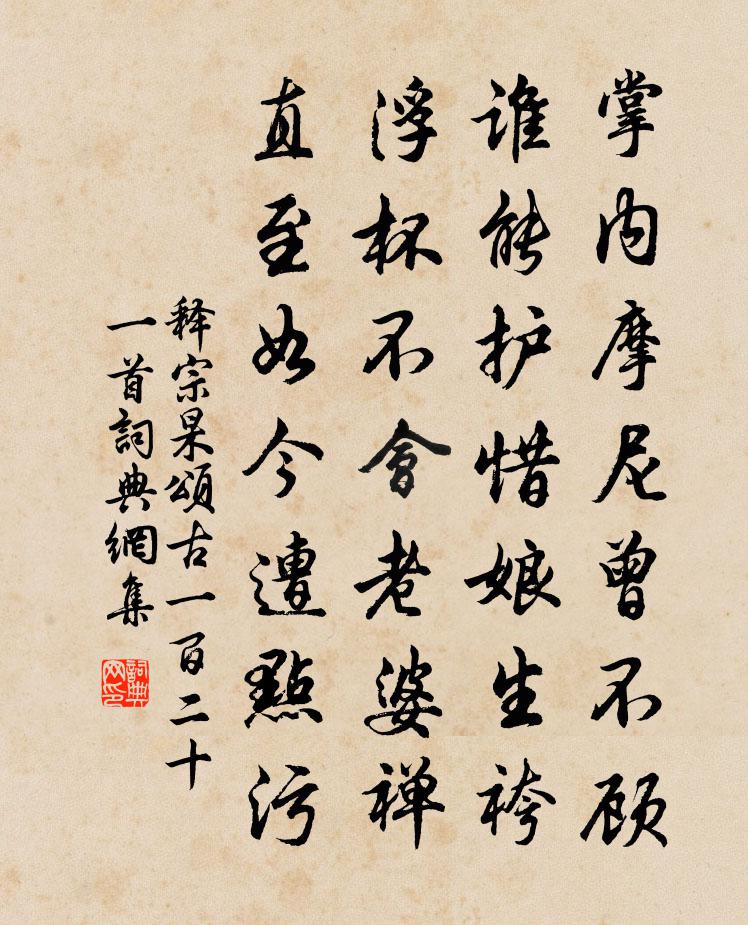 掌内摩尼曾不顾
谁能护惜娘生袴
浮杯不會老婆禅
直至如今遭點污
释宗杲頌古一百二十
一首詞典網集
詞典
网印